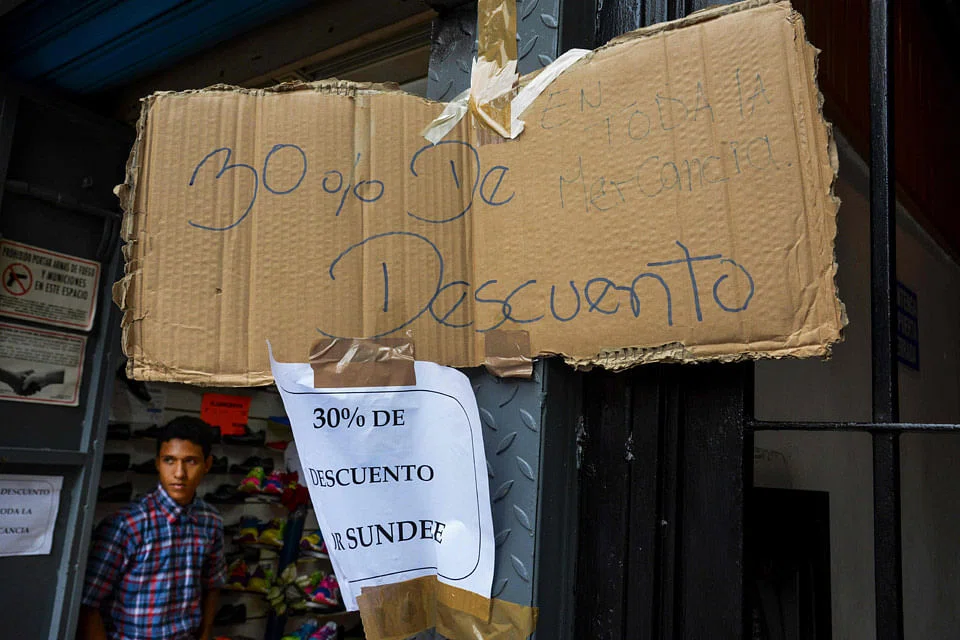 30% De
Descuento
EN TODA lA
Mercancia.
30% DE
DESCUENTO
OR SUNDEE
PROHIBIDO PORTAR ARMAS DE FUEGO
Y MUNICIONES
EN ESTE ESPACIO
DESCUENTO
ODA LA
CANCIA